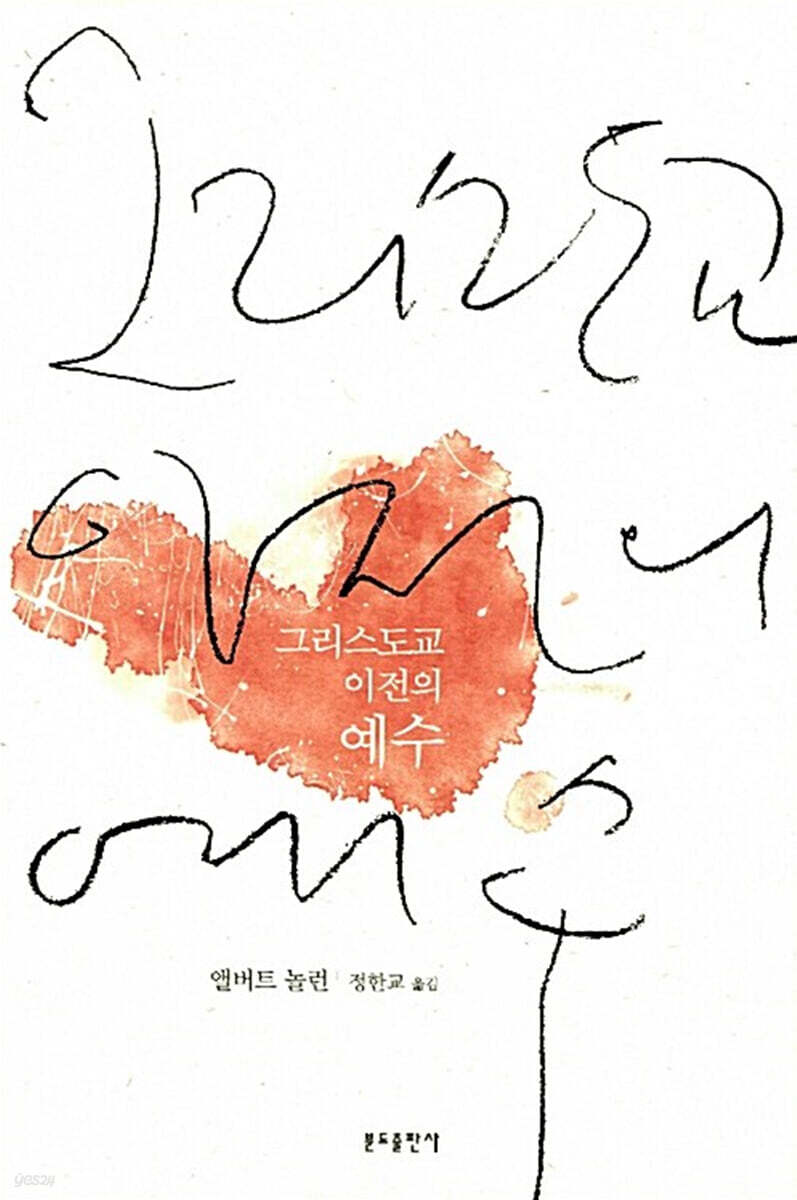 그리스도교
이전의
예수
그리스도교
이전의
예수
앨버트 놀런 | 정한교 옮김
분도출판사
yes24